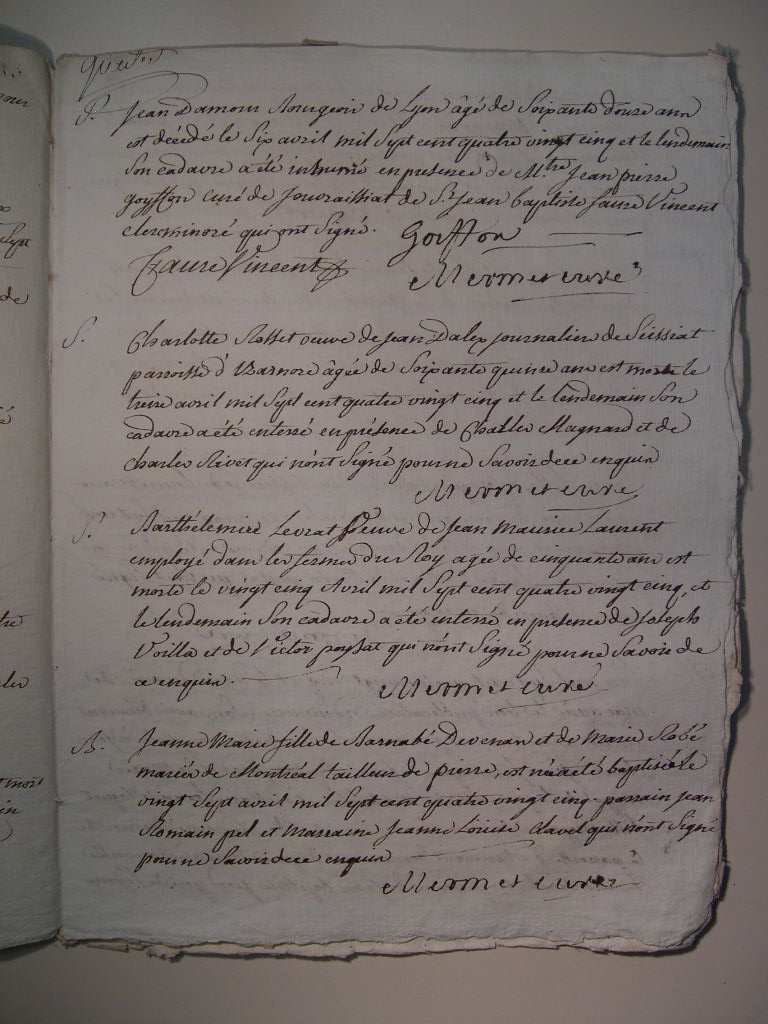 S. Jean Damour Bourgeois de Lyon âgé de Soixante douze ans
est décédé le Six avril mil Sept cent quatre vingt cinq et le lendemain
Son cadavre a été inhumé en presence de M.tre Jean pierre
goyffon curé de Jouvraissiat de S.r Jean baptiste faure Vincent
clerc minoré qui ont Signé. Goiffon
Faure Vincent
Mermet curé
S. Charlotte Rosset veuve de Jean Dalex journalier de Seissiat
parroisse d'Izarnore âgée de Soixante quinze ans est morte le
treize avril mil Sept cent quatre vingt cinq et le lendemain Son
cadavre a été enterré en présence de Charles Magnard et de
Charles Rivet qui n'ont Signé pour ne Savoir de ce enquis
Mermet curé
S. Barthélemie Levrat veuve de Jean Maurice Laurent
employé dans les fermes du Roy agée de cinquante ans est
morte le vingt cinq Avril mil Sept cent quatre vingt cinq, et
le lendemain Son cadavre a été enterré en presence de Joseph
Voilla et de Victor poysat qui n'ont Signé pour ne Savoir de
ce enquis.
Mermet curé
B. Jeanne Marie fille de Barnabé Devenan et de Marie Robé
mariés de Montréal tailleur de pierre, est née a été baptisée le
vingt Sept avril mil Sept cent quatre vingt cinq. parrain Jean
Romain pel et Marraine Jeanne Louise Clavel qui n'ont Signé
pour ne Savoir de ce enquis
Mermet curé